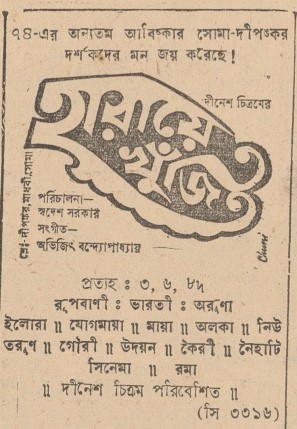 ৭৪-এর অন্যতম আবিষ্কার সোমা-দীপঙ্কর
দর্শকদের মন জয় করেছে!
দীনেশ চিত্রমের
হারায়ে
খুঁজি
শ্রেঃ-দীপঙ্কর, মাধবী, সোমা
পরিচালনা—
স্বদেশ সরকার
সংগীত—
অভিজিৎ বন্দ্যোপাধ্যায়
Chuni
প্রত্যহ : ৩, ৬, ৮৸
রূপবাণী : ভারতী : অরুণা
ইলোরা ॥ যোগমায়া ॥ মায়া ॥ অলকা ॥ নিউ
তরুণ ॥ গৌরী ॥ উদয়ন ॥ কৈরী ॥ নৈহাটি
সিনেমা ॥ রমা
॥ দীনেশ চিত্রম পরিবেশিত ॥
(সি ৩৩১৬)